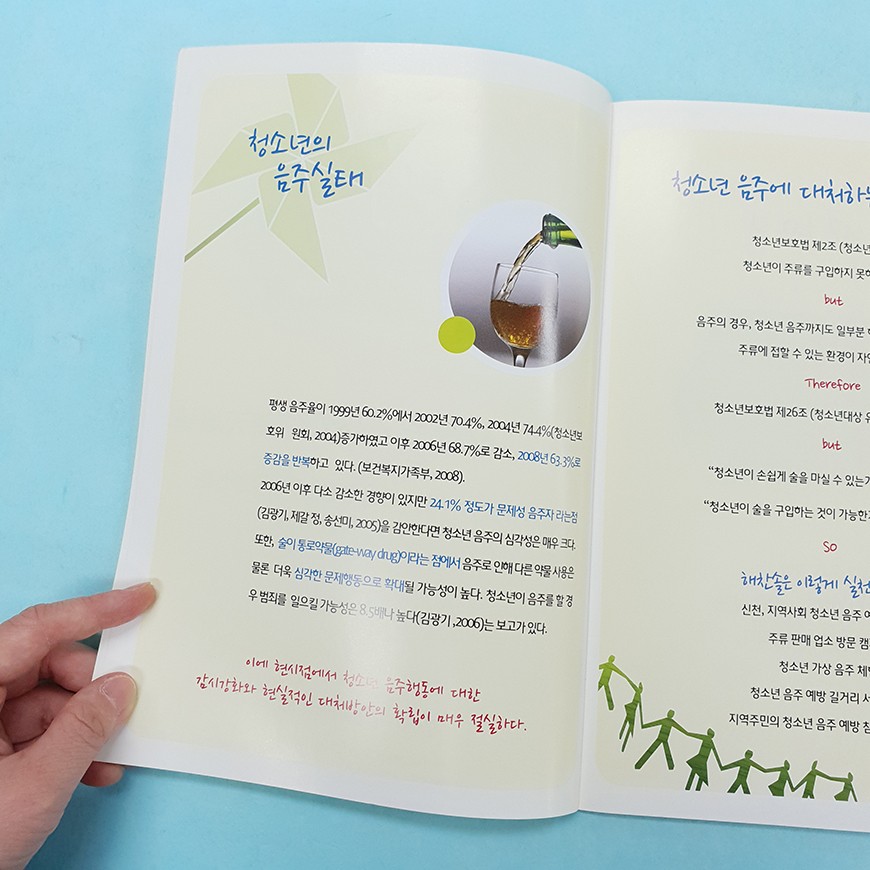 청소년의
음주실태
평생 음주율이 1999년 60.2%에서 2002년 70.4%, 2004년 74.4%(청소년보
호위 원회, 2004)증가하였고 이후 2006년 68.7%로 감소, 2008년 63.3%로
증감을 반복하고 있다. (보건복지가족부, 2008).
2006년 이후 다소 감소한 경향이 있지만 24.1% 정도가 문제성 음주자 라는점
(김광기, 제갈 정, 송선미, 2005)을 감안한다면 청소년 음주의 심각성은 매우 크다.
또한, 술이 통로약물(gate-way drug)이라는 점에서 음주로 인해 다른 약물 사용은
물론 더욱 심각한 문제행동으로 확대될 가능성이 높다. 청소년이 음주를 할 경
우 범죄를 일으킬 가능성은 8.5배나 높다(김광기 ,2006)는 보고가 있다.
이에 현시점에서 청소년 음주행동에 대한
감시강화와 현실적인 대처방안의 확립이 매우 절실하다.
청소년 음주에 대처하
청소년보호법 제2조 (청소년
청소년이 주류를 구입하지 못하
but
음주의 경우, 청소년 음주까지도 일부분
주류에 접할 수 있는 환경이 자
Therefore
청소년보호법 제26조 (청소년대상
but
“청소년이 손쉽게 술을 마실 수 있는
“청소년이 술을 구입하는 것이 가능한
so
해찬솔은 이렇게 실천
신천, 지역사회 청소년 음주
주류 판매 업소 방문 캠
청소년 가상 음주 체
청소년 음주 예방 길거리
지역주민의 청소년 음주 예방